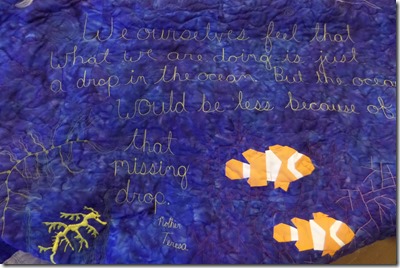 We ourselves feel that
what we are doing is just
a drop in the ocean. But the ocean
would be less because of
that
missing
drop.
Mother
Teresa